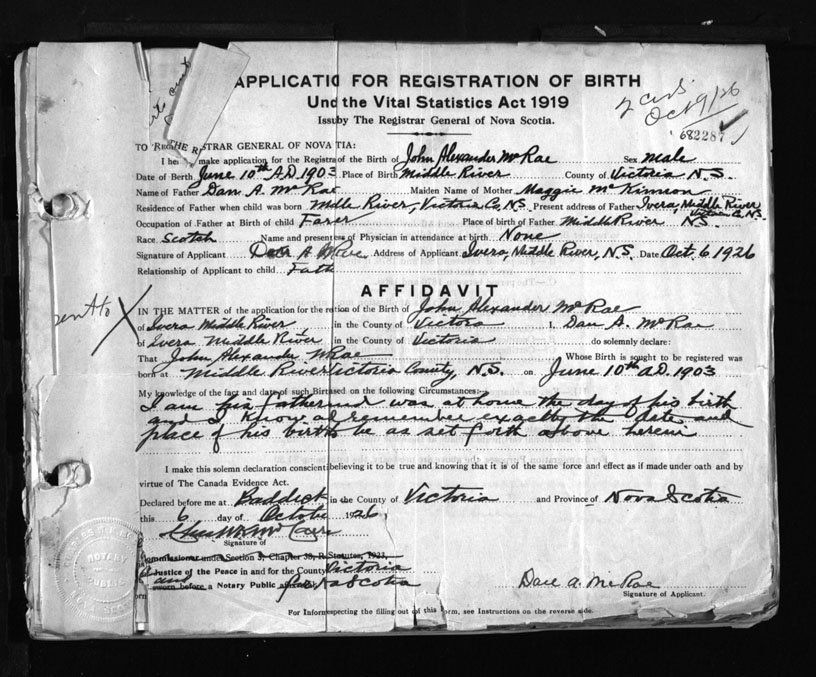 APPLICATIO FOR REGISTRATION OF BIRTH
Und the Vital Statistics Act 1919
Issu by The Registrar General of Nova Scotia.
Oct 9/26
682287
TO THE R STRAR GENERAL OF NOVA TIA:
I he make application for the Registra of the Birth of John Alexander McRae Sex male
Date of Birth June 10th A.D. 1903 Place of Birth Middle River County of Victoria N.S.
Name of Father Dan A. McRae Maiden Name of Mother Maggie McKinnon
Residence of Father when child was born Middle River, Victoria Co. N.S. Present address of Father Ivera, Middle River
Victoria Co. N.S.
Occupation of Father at Birth of child Farer Place of birth of Father Middle River N.S.
Race Scotch Name and present ess of Physician in attendance at birth None
Signature of Applicant A McRae Address of Applicant Ivera, Middle River, N.S. Date Oct. 6 1926
Relationship of Applicant to child Fath
AFFIDAVIT
sent to X
IN THE MATTER of the application for the re tion of the Birth of John Alexander McRae
of Ivera Middle River in the County of Victoria I, Dan A. McRae
of Ivera Middle River in the County of Victoria do solemnly declare:
That John Alexander McRae Whose Birth is sought to be registered was
born at Middle River Victoria County, N.S. on June 10th A.D. 1903
My knowledge of the fact and date of such Birt ased on the following Circumstances:—
I am his father and was at home the day of his birth
and I know and remember exactly the date and
place of his birth to be as set forth above herein
I make this solemn declaration conscient believing it to be true and knowing that it is of the same force and effect as if made under oath and by
virtue of The Canada Evidence Act.
Declared before me at Baddeck in the County of Victoria and Province of Nova Scotia
this 6 day of October 1926
Signature of
Commissioner under Section 3, Chapter 38, R. Statutes, 1923,
Justice of the Peace in and for the County Victoria
and
sworn before a Notary Public Scotia
Dan A. McRae
Signature of Applicant.
NOTARY
For Infor specting the filling out of this form, see Instructions on the reverse side.